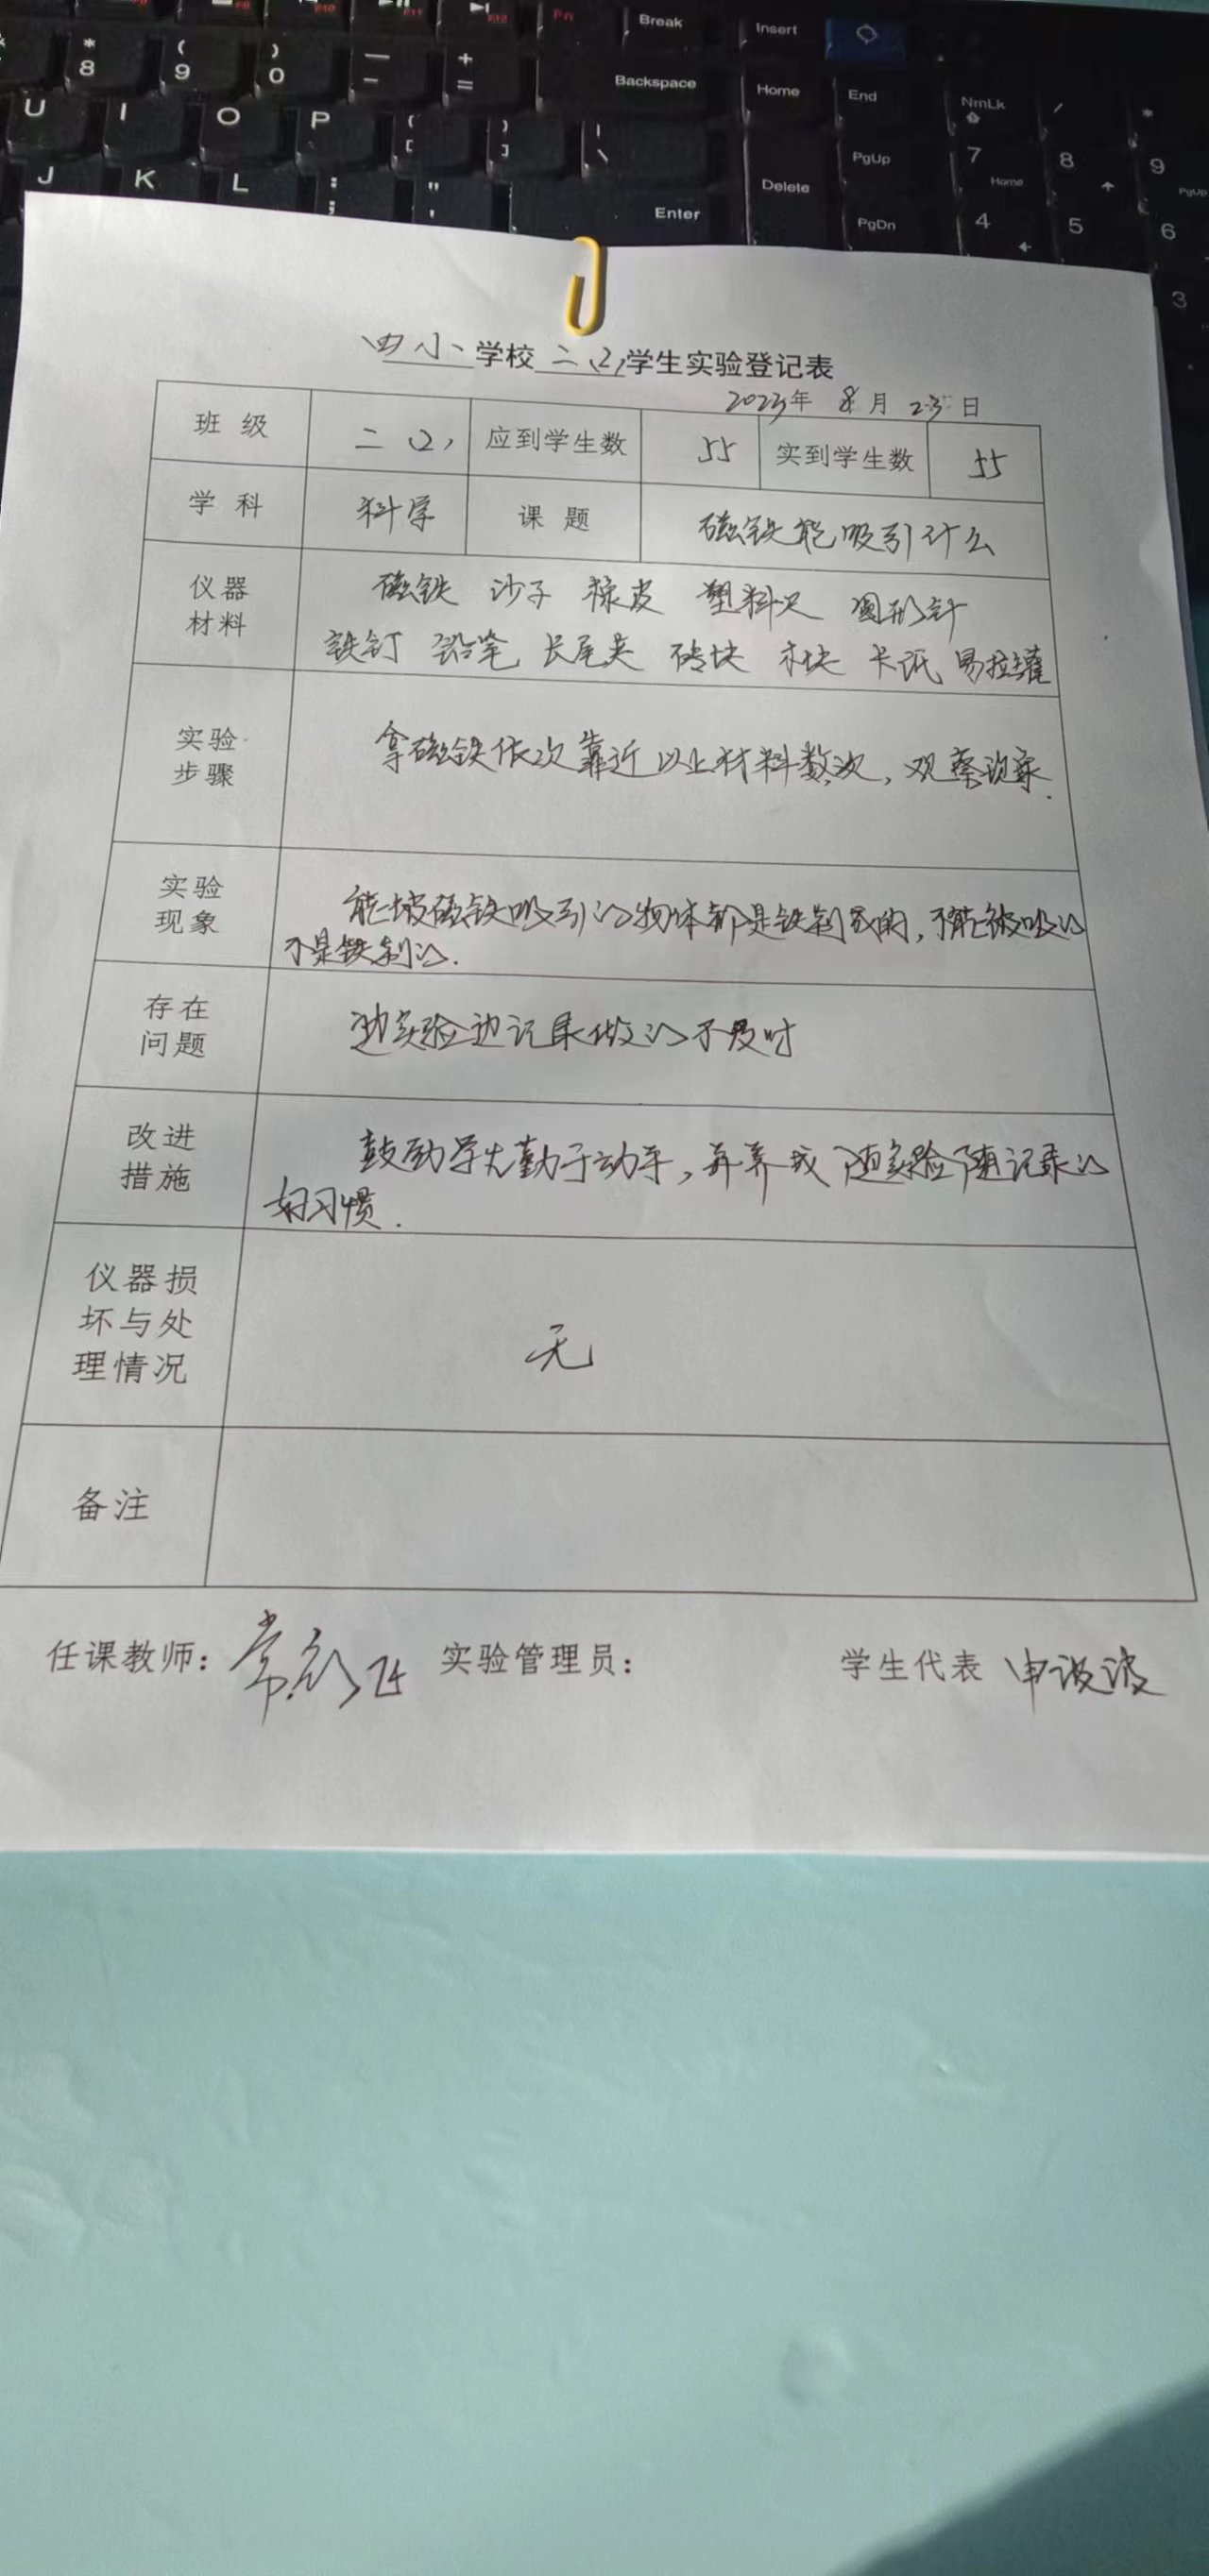 F9 F10 F11 F12 Fn Break Insert
* 8 ( 9 ) 0 — - + = Backspace Home End NmLk / *
U I O P { [ } ] | \ Delete PgUp 7 Home 8 9 PgUp
J K L : ; " ' Enter PgDn 4 5 6
3
四小学校二(2)学生实验登记表
2023年 8月 23日
班级 二(2) 应到学生数 55 实到学生数 55
学科 科学 课题 磁铁能吸引什么
仪器材料 磁铁 沙子 橡皮 塑料尺 圆形针
铁钉 铅笔 长尾夹 砖块 木块 卡纸 易拉罐
实验步骤 拿磁铁依次靠近以上材料数次,观察现象.
实验现象 能被磁铁吸引的物体都是铁制成的,不能被吸的
不是铁制的.
存在问题 边实验边记录做的不及时
改进措施 鼓励学生勤于动手,并养成随实验随记录的
好习惯.
仪器损坏与处理情况 无
备注
任课教师: 常 实验管理员: 学生代表 申波波